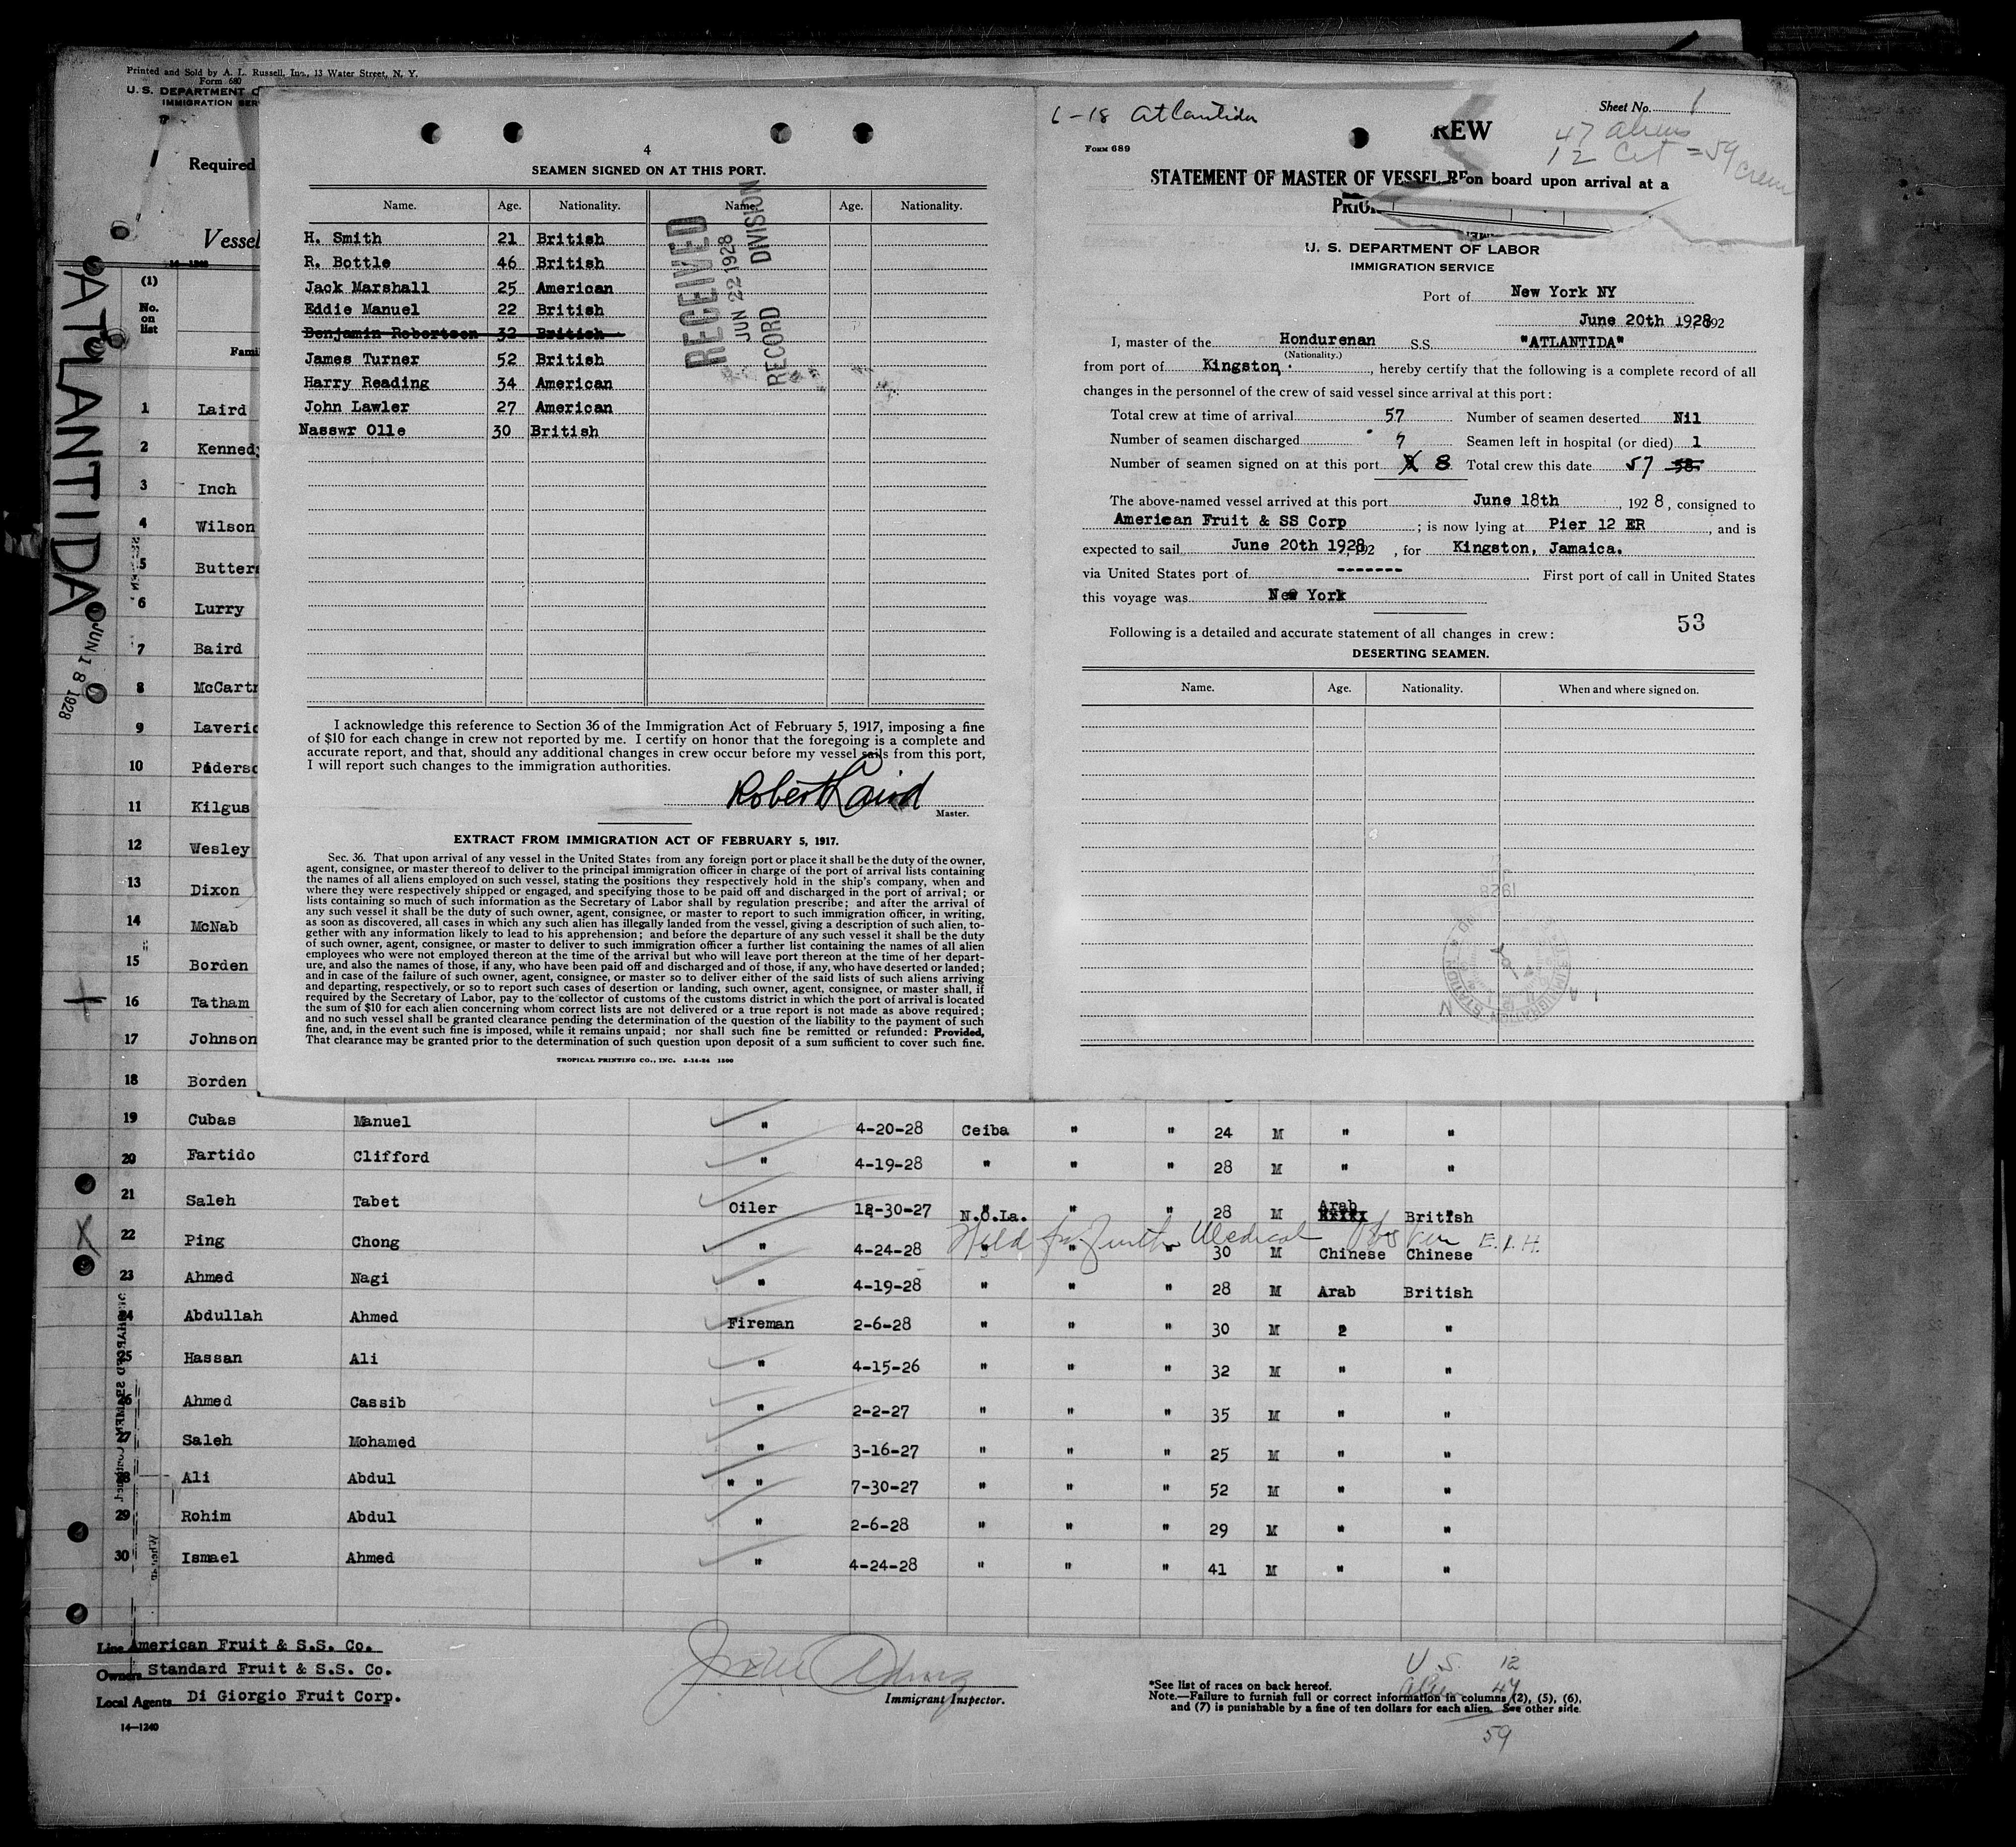 Printed and Sold by A. L. Russell, Inc., 13 Water Street, N. Y.
Form 680
U. S. DEPARTMENT
IMMIGRATION SER
Required
Vessel
(1)
No. on list
Fami
ATLANTIDA
JUN 18 1928
1 Laird
2 Kennedy
3 Inch
4 Wilson
5 Butters
6 Lurry
7 Baird
8 McCartn
9 Laveric
10 Piderso
11 Kilgus
12 Wesley
13 Dixon
14 McNab
15 Borden
16 Tatham
17 Johnson
18 Borden
4
SEAMEN SIGNED ON AT THIS PORT.
Name. Age. Nationality. Name. Age. Nationality.
H. Smith 21 British
R. Bottle 46 British
Jack Marshall 25 American
Eddie Manuel 22 British
Benjamin Robertson 32 British
James Turner 52 British
Harry Reading 34 American
John Lawler 27 American
Nasswr Olle 30 British
RECEIVED
JUN 22 1928
RECORD DIVISION
I acknowledge this reference to Section 36 of the Immigration Act of February 5, 1917, imposing a fine
of $10 for each change in crew not reported by me. I certify on honor that the foregoing is a complete and
accurate report, and that, should any additional changes in crew occur before my vessel sails from this port,
I will report such changes to the immigration authorities.
Robert Laird
Master.
EXTRACT FROM IMMIGRATION ACT OF FEBRUARY 5, 1917.
Sec. 36. That upon arrival of any vessel in the United States from any foreign port or place it shall be the duty of the owner,
agent, consignee, or master thereof to deliver to the principal immigration officer in charge of the port of arrival lists containing
the names of all aliens employed on such vessel, stating the positions they respectively hold in the ship's company, when and
where they were respectively shipped or engaged, and specifying those to be paid off and discharged in the port of arrival; or
lists containing so much of such information as the Secretary of Labor shall by regulation prescribe; and after the arrival of
any such vessel it shall be the duty of such owner, agent, consignee, or master to report to such immigration officer, in writing,
as soon as discovered, all cases in which any such alien has illegally landed from the vessel, giving a description of such alien, to-
gether with any information likely to lead to his apprehension; and before the departure of any such vessel it shall be the duty
of such owner, agent, consignee, or master to deliver to such immigration officer a further list containing the names of all alien
employees who were not employed thereon at the time of the arrival but who will leave port thereon at the time of her depart-
ure, and also the names of those, if any, who have been paid off and discharged and of those, if any, who have deserted or landed;
and in case of the failure of such owner, agent, consignee, or master so to deliver either of the said lists of such aliens arriving
and departing, respectively, or so to report such cases of desertion or landing, such owner, agent, consignee, or master shall, if
required by the Secretary of Labor, pay to the collector of customs of the customs district in which the port of arrival is located
the sum of $10 for each alien concerning whom correct lists are not delivered or a true report is not made as above required;
and no such vessel shall be granted clearance pending the determination of the question of the liability to the payment of such
fine, and, in the event such fine is imposed, while it remains unpaid; nor shall such fine be remitted or refunded: Provided,
That clearance may be granted prior to the determination of such question upon deposit of a sum sufficient to cover such fine.
TROPICAL PRINTING CO., INC. 5-14-24 1500
6-18 Atlantida
Sheet No. 1
47 aliens
12 Cit = 59 crew
FORM 689
REW
STATEMENT OF MASTER OF VESSEL RE
on board upon arrival at a
PRIOR
U. S. DEPARTMENT OF LABOR
IMMIGRATION SERVICE
Port of New York NY
June 20th 1928, 192
I, master of the Hondurenan S.S. "ATLANTIDA"
(Nationality.)
from port of Kingston, hereby certify that the following is a complete record of all
changes in the personnel of the crew of said vessel since arrival at this port:
Total crew at time of arrival 57 Number of seamen deserted Nil
Number of seamen discharged 7 Seamen left in hospital (or died) 1
Number of seamen signed on at this port 8 Total crew this date 57 58
The above-named vessel arrived at this port June 18th, 1928, consigned to
American Fruit & SS Corp; is now lying at Pier 12 ER, and is
expected to sail June 20th 1928, 192, for Kingston, Jamaica.
via United States port of ------- First port of call in United States
this voyage was New York
53
Following is a detailed and accurate statement of all changes in crew:
DESERTING SEAMEN.
Name. Age. Nationality. When and where signed on.
19 Cubas Manuel " 4-20-28 Ceiba " " 24 M " "
20 Fartido Clifford " 4-19-28 " " " 28 M " "
21 Saleh Tabet Oiler 12-30-27 N.O.La. " " 28 M Arab British
22 Ping Chong " 4-24-28 " " " 30 M Chinese Chinese
Held for further Medical Obs E.I.H.
23 Ahmed Nagi " 4-19-28 " " " 28 M Arab British
24 Abdullah Ahmed Fireman 2-6-28 " " " 30 M 2 "
25 Hassan Ali " 4-15-26 " " " 32 M " "
26 Ahmed Cassib " 2-2-27 " " " 35 M " "
27 Saleh Mohamed " 3-16-27 " " " 25 M " "
28 Ali Abdul " " 7-30-27 " " " 52 M " "
29 Rohim Abdul " 2-6-28 " " " 29 M " "
30 Ismael Ahmed " 4-24-28 " " " 41 M " "
Line American Fruit & S.S. Co.
Owners Standard Fruit & S.S. Co.
Local Agents Di Giorgio Fruit Corp.
14—1240
Immigrant Inspector.
U S 12
Alien 47
59
*See list of races on back hereof.
Note.—Failure to furnish full or correct information in columns (2), (5), (6),
and (7) is punishable by a fine of ten dollars for each alien. See other side.